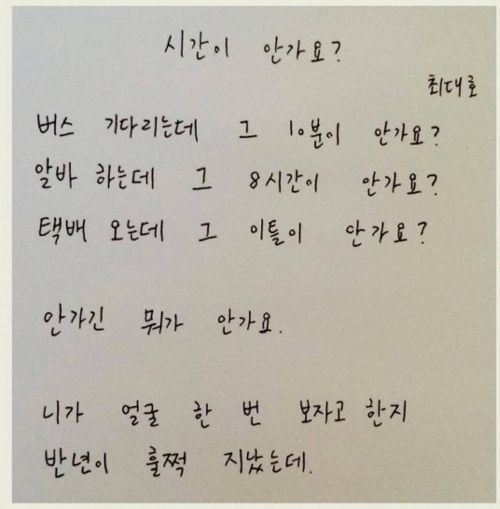 시간이 안가요?
최대호
버스 기다리는데 그 10분이 안가요?
알바 하는데 그 8시간이 안가요?
택배 오는데 그 이틀이 안가요?
안가긴 뭐가 안가요.
니가 얼굴 한 번 보자고 한지
반년이 훌쩍 지났는데.